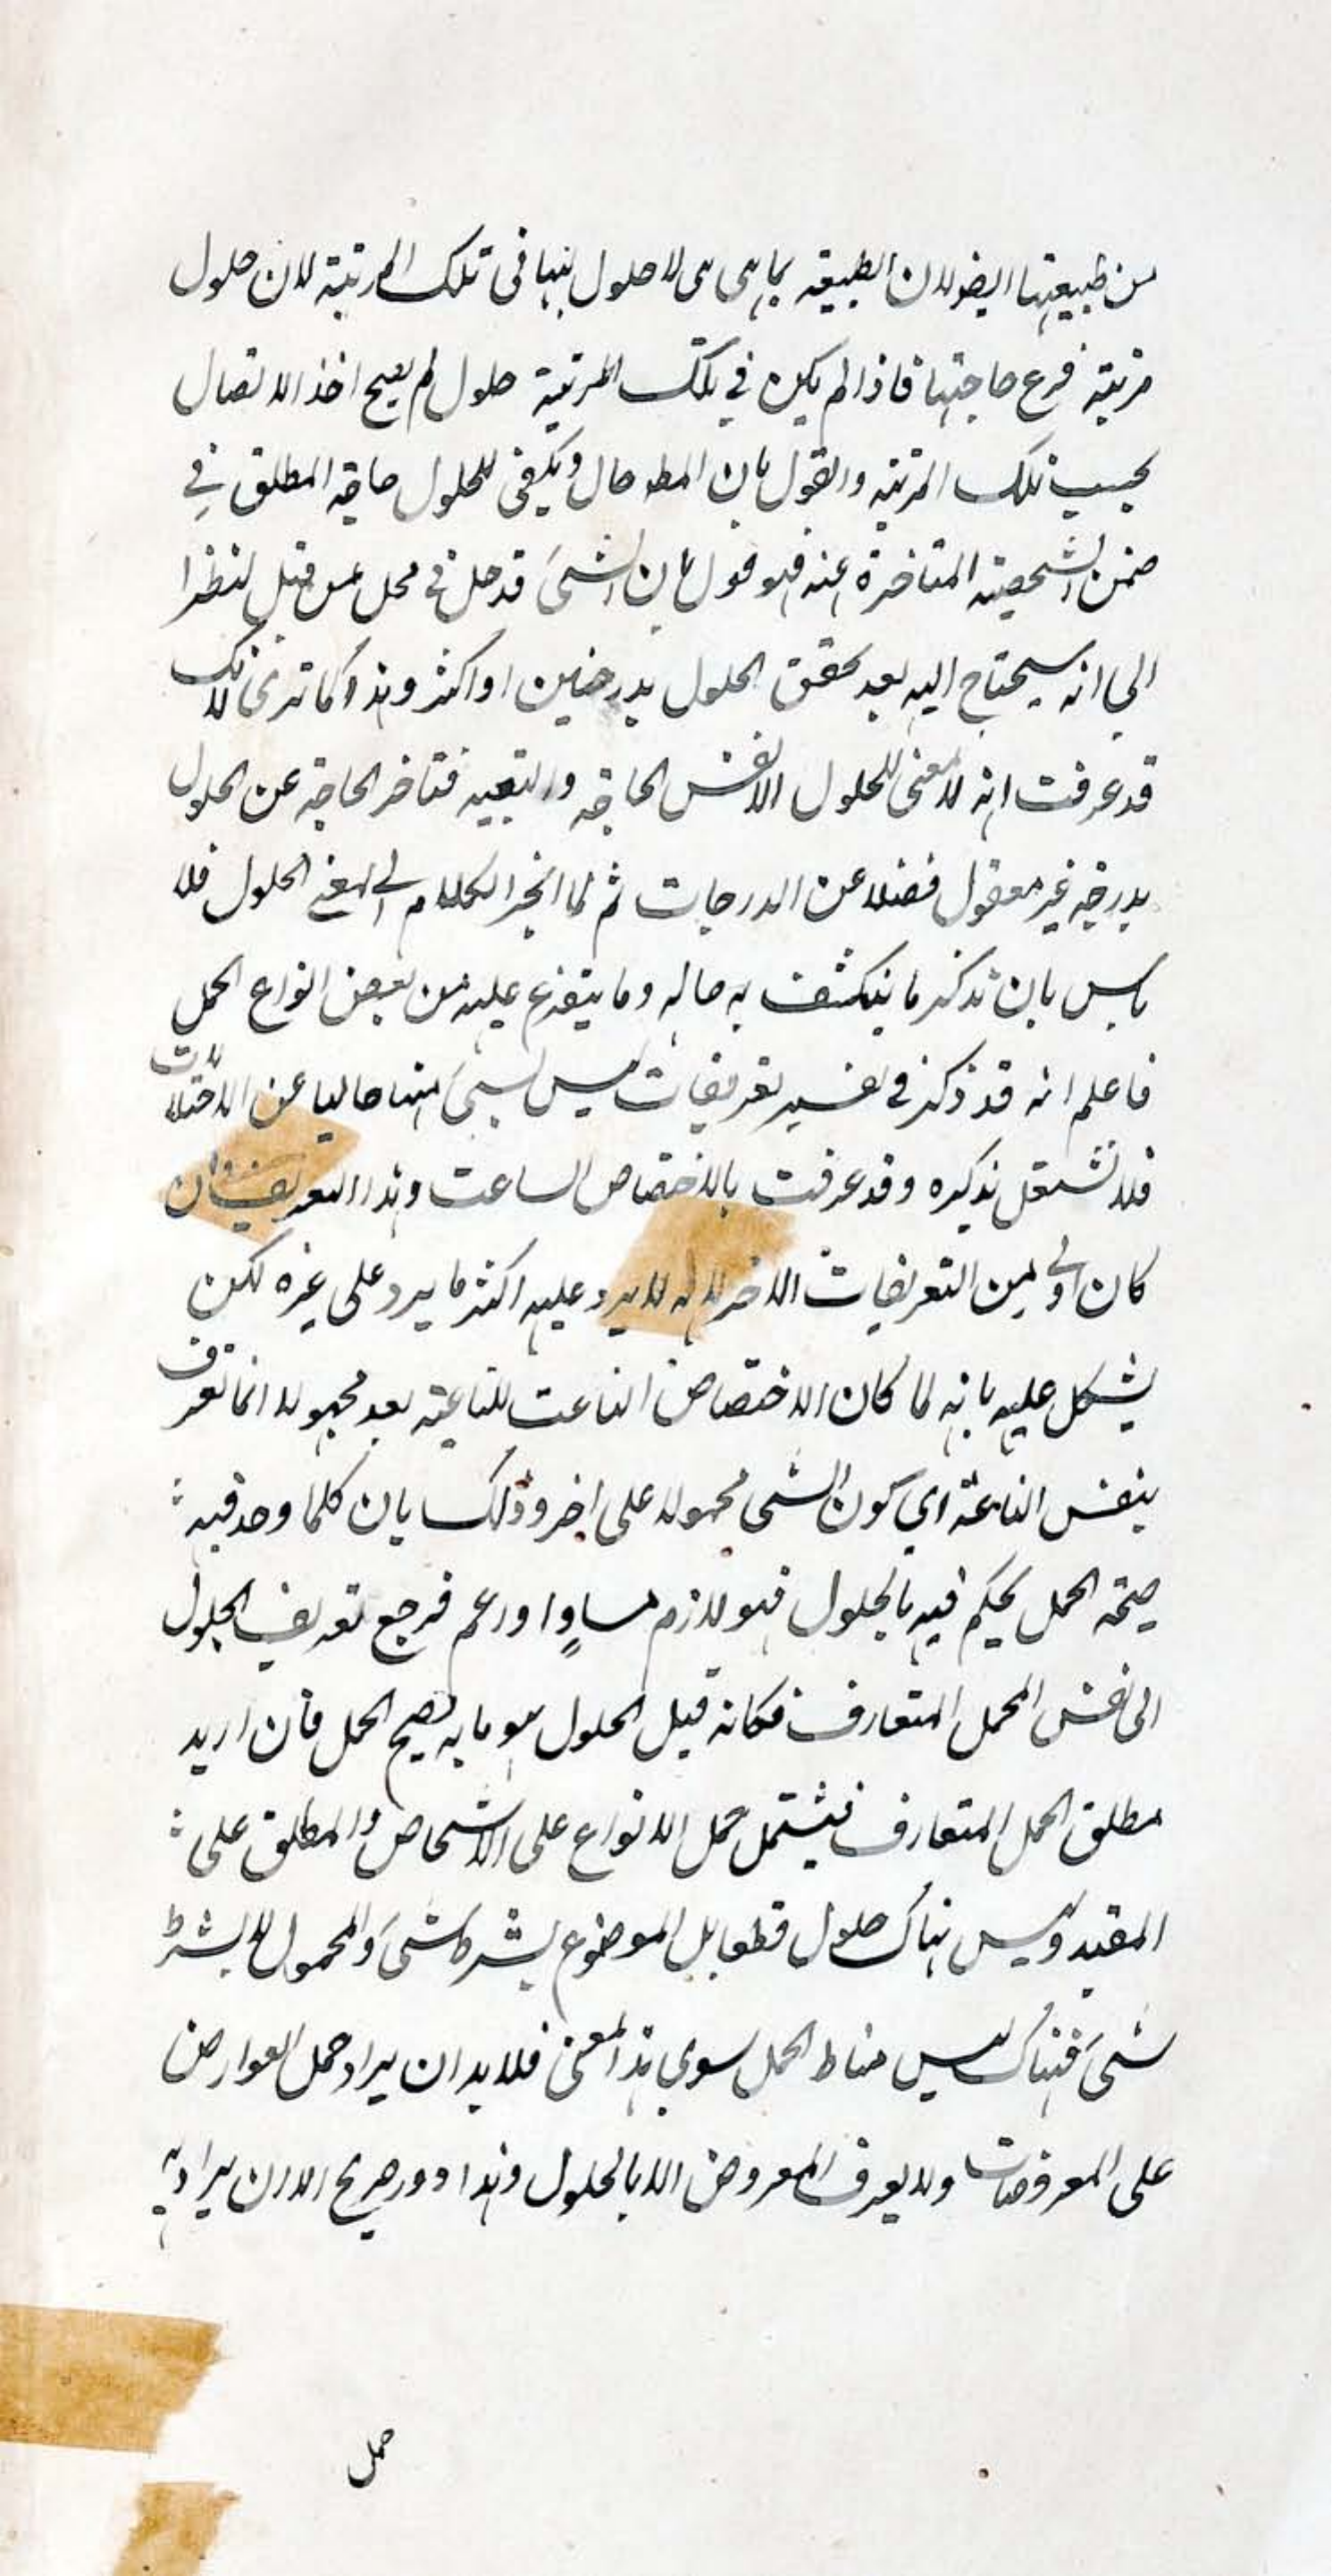 من طبيعتها ايضا لان الطبيعة بما هى هى لا حلول لها فى تلك المرتبة لان حلول
مرتبة فرع حاجتها فاذا لم يكن في تلك المرتبة حلول لم يصح اخذ الاتصال
بحسب تلك المرتبة والقول بان المط حال ويكفى للحلول حاجة المطلق في
ضمن الشخصية المتاخرة عنه فهو قول بان الشىَ قد حل فى محل من قبل نظرا
الى انه سيحتاج اليه بعد تحقق الحلول بدرجتين او اكثر وهذا كما ترى لانك
قد عرفت انه لا معنى للحلول الا نفس الحاجة والتبعية فتاخر الحاجة عن الحلول
بدرجة غير معقول فضلا عن الدرجات ثم لما انجر الكلام الى معنى الحلول فلا
باس بان نذكر ما ينكشف به حاله وما يتفرع عليه من بعض انواع الحمل
فاعلم انه قد ذكر فى تفسيره تعريفات ليس شىَ منها خاليا عن الاختلالات
فلا نشتغل بذكره وقد عرفت بالاختصاص الناعت وهذا التعريف وان
كان اولى من التعريفات الاخر لانه لا يرد عليه اكثر ما يرد على غيره لكن
يشكل عليه بانه لما كان الاختصاص الناعت للناعتية بعد مجهولا انما تعرف
بنفس الناعتة اي كون الشى محمولا على اخر وذلك بان كلما وجد فيه
صحة الحمل يحكم فيه بالحلول فهو لازم مساوٍ او اعم فرجع تعريف الحلول
الى نفس الحمل المتعارف فكانه قيل الحلول هو ما به يصح الحمل فان اريد
مطلق الحمل المتعارف فيشتمل حمل الانواع على الاشخاص والمطلق على
المقيد وليس هناك حلول قطعا بل الموضوع بشرط شىَ والمحمول لا بشرط
شىَ فهناك ليس مناط الحمل سوى هذا المعنى فلا بد ان يراد حمل العوارض
على المعروضات ولا يعرف المعروض الا بالحلول وهذا دور صريح الا ان يراد به
حمل